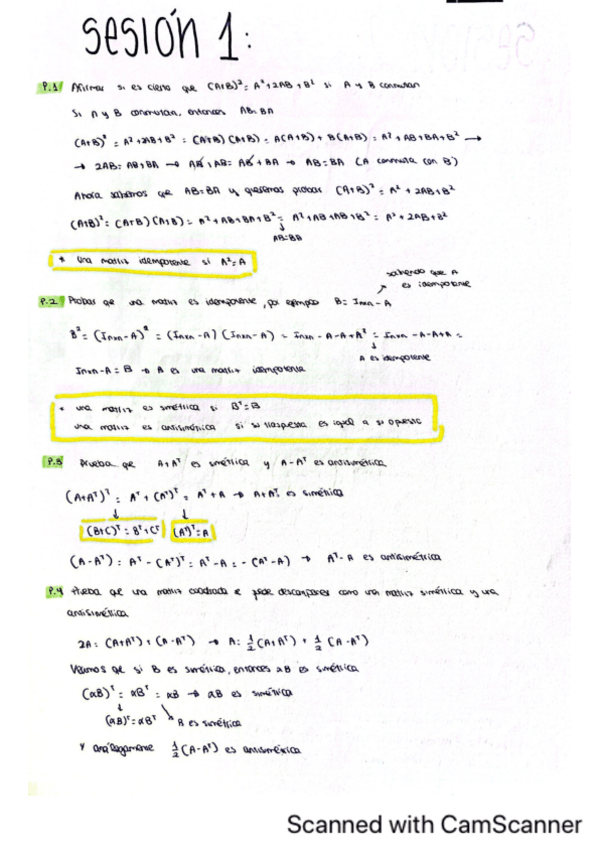 Sesión 1:
P.1 Afirmar si es cierto que (A+B)² = A²+2AB+B² si A y B conmutan
Si A y B conmutan, entonces AB=BA
(A+B)² = A²+2AB+B² = (A+B)(A+B) = A(A+B) + B(A+B) = A²+AB+BA+B² →
→ 2AB = AB+BA → AB+AB = AB+BA → AB=BA (A conmuta con B)
Ahora sabemos que AB=BA y queremos probar (A+B)² = A²+2AB+B²
(A+B)² = (A+B)(A+B) = A²+AB+BA+B² = A²+AB+AB+B² = A²+2AB+B²
↓
AB=BA
* una matriz idempotente si A²=A
sabiendo que A
↗ es idempotente
P.2 Probar qe una matriz es idempotente, por ejemplo B = Inxn - A
B² = (Inxn-A)² = (Inxn-A)(Inxn-A) = Inxn-A-A+A² = Inxn-A-A+A =
↓
A es idempotente
Inxn-A = B → A es una matriz idempotente
* una matriz es simétrica si Bᵀ=B
una matriz es antisimétrica si su traspuesta es igual a su opuesto
P.3 Prueba qe A+Aᵀ es simétrica y A-Aᵀ es antisimétrica
(A+Aᵀ)ᵀ = Aᵀ+(Aᵀ)ᵀ = Aᵀ+A → A+Aᵀ es simétrica
↓ ↓
(B+C)ᵀ = Bᵀ+Cᵀ (Aᵀ)ᵀ=A
(A-Aᵀ) = Aᵀ-(Aᵀ)ᵀ = Aᵀ-A = -(Aᵀ-A) → Aᵀ-A es antisimétrica
P.4 Prueba qe una matriz cuadrada se puede descomponer como una matriz simétrica y una
antisimétrica
2A = (A+Aᵀ)+(A-Aᵀ) → A = ½(A+Aᵀ) + ½(A-Aᵀ)
Veamos qe si B es simétrica, entonces αB es simétrica
(αB)ᵀ = αBᵀ = αB → αB es simétrica
↓ ↘
(αB)ᵀ=αBᵀ B es simétrica
Y análogamente ½(A-Aᵀ) es antisimétrica
Scanned with CamScanner